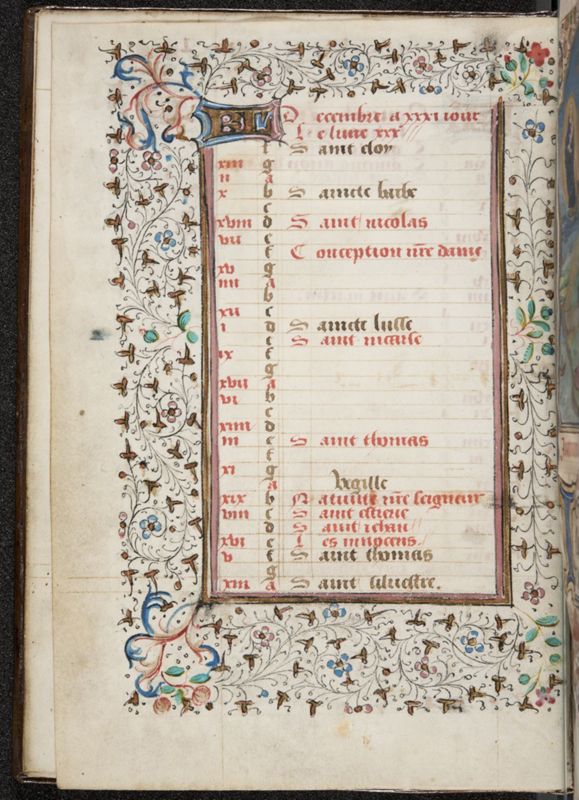 KL Decembre a xxxi iour
Le lune xxx
f Saint eloy
xiii g
ii a
x b Saincte barbe
c
xviii d Saint nicolas
vii e
f Conception nre dame
xv g
iiii a
b
xii c
i d Saincte lusse
e Saint nicaise
ix f
g
xvii a
vi b
c
xiiii d
iii e Saint thomas
f
xi g
a Vigille
xix b Natiuite nre seigneur
viii c Saint estiene
d Saint iehan
xvi e Les innocens
v f Saint thomas
g
xiii a Saint siluestre.